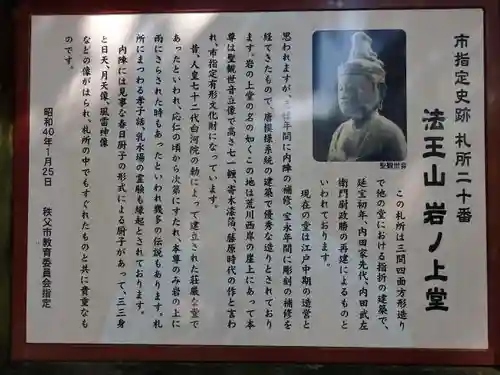 市指定史跡 札所二十番
法王山 岩ノ上堂
聖観世音
この札所は三間四面方形造り
で他の堂における指折の建築で、
延宝初年、内田家先代、内田武左
衛門尉政勝の再建によるものと
いわれております。
現在の堂は江戸中期の造営と
思われますが、三年間に内陣の補修、宝永年間に彫刻の補修を
経てきたもので、唐模様系統の建築で優秀な造りとされており
ます。岩の上堂の名の如くこの地は荒川西岸の崖上にあって本
尊は聖観世音立像で高さ七一糎、寄木漆箔、藤原時代の作と言わ
れ、市指定有形文化財になっています。
昔、人皇七十二代白河院の勅によって建立された荘厳な堂で
あったといわれ、応仁の頃から次第にすたれ、本尊のみ岩の上に
雨にさらされた時もあったといわれ幾多の伝説もあります。札
所にまつわる孝子話、乳水場の霊験も縁起とされております。
内陣には見事な春日厨子の形式による厨子があって、三三身
と日天、月天像、風雷神像
などの像がはられ、札所の中でもすぐれたものと共に貴重なも
のです。
昭和40年1月25日 秩父市教育委員会指定